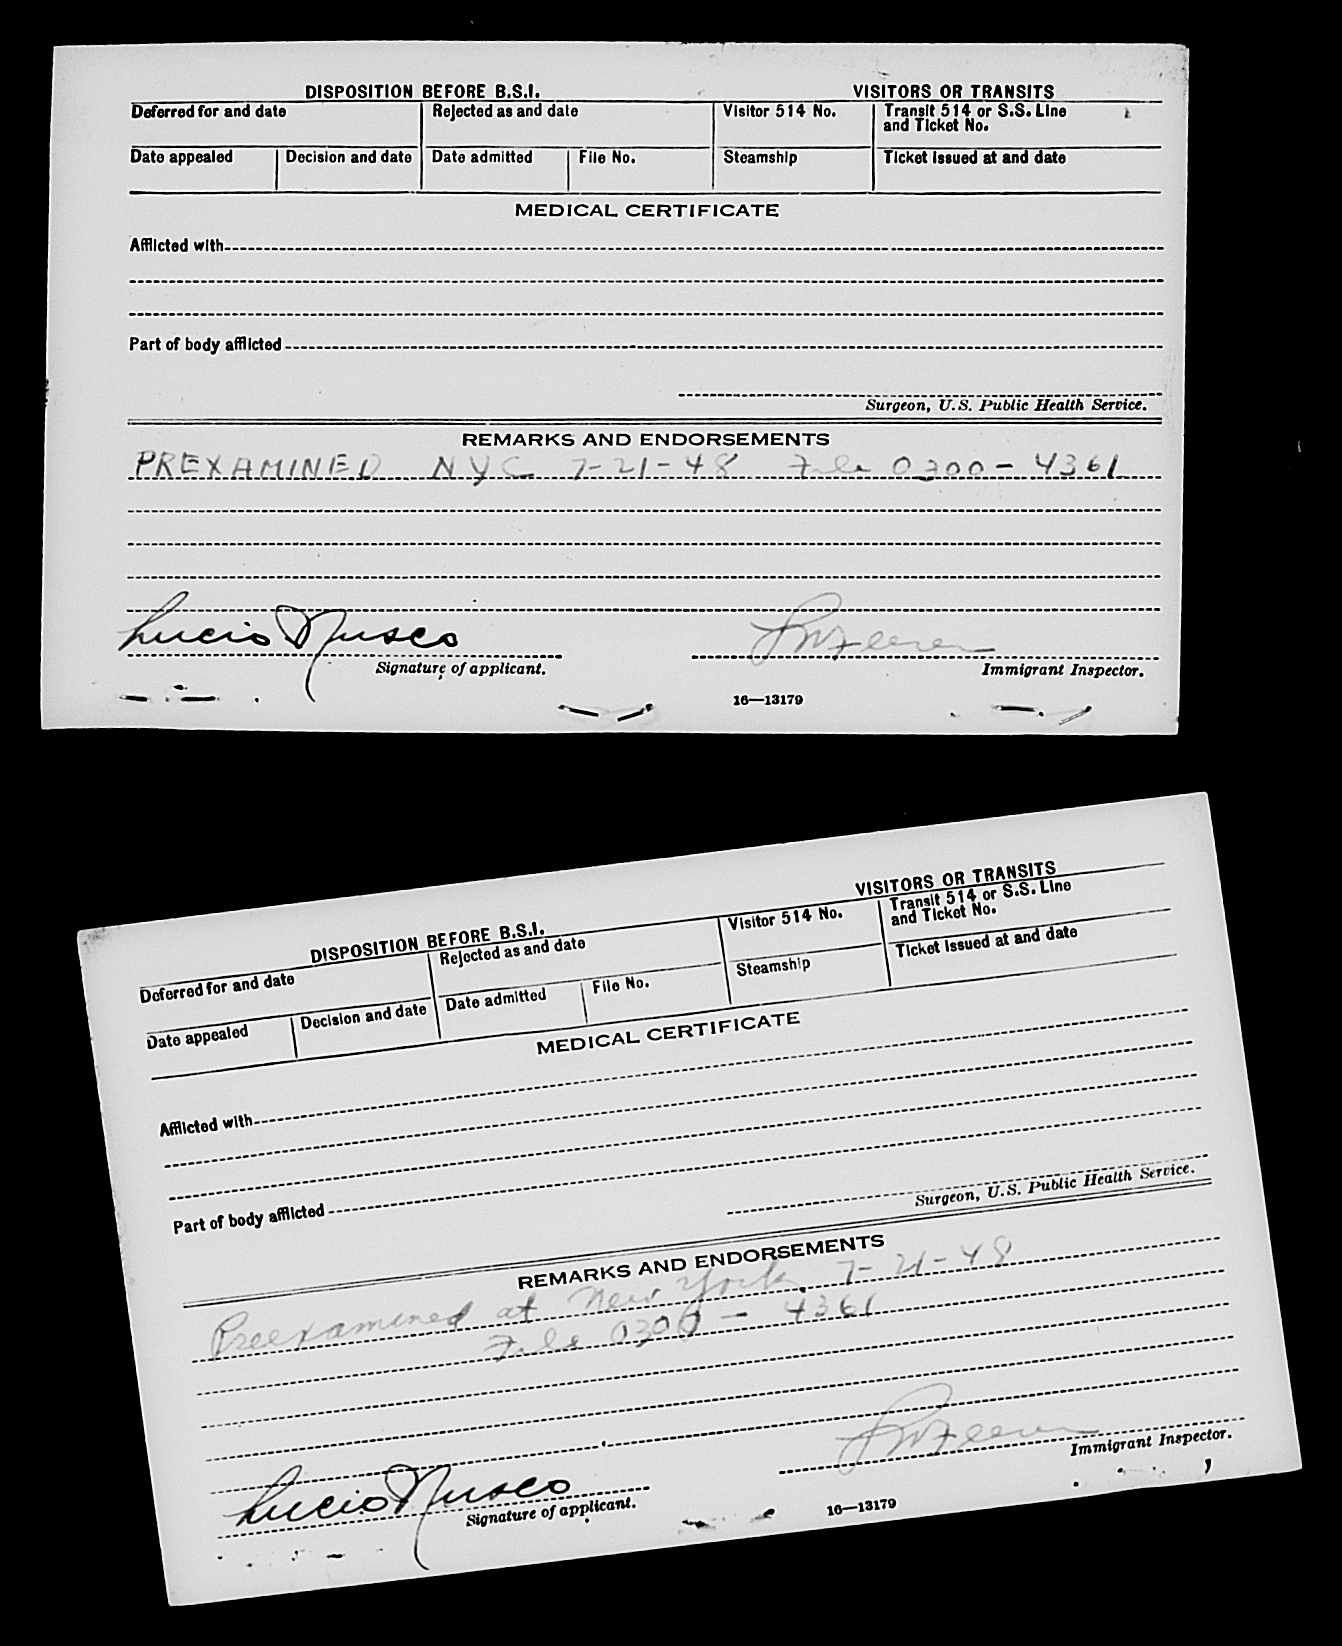 DISPOSITION BEFORE B.S.I. VISITORS OR TRANSITS
Deferred for and date Rejected as and date Visitor 514 No. Transit 514 or S.S. Line
and Ticket No.
Date appealed Decision and date Date admitted File No. Steamship Ticket issued at and date
MEDICAL CERTIFICATE
Afflicted with
Part of body afflicted
Surgeon, U.S. Public Health Service.
REMARKS AND ENDORSEMENTS
PREXAMINED NYC 7-21-48 File 0300-4361
Lucio Nusco
Signature of applicant. Immigrant Inspector.
16—13179
DISPOSITION BEFORE B.S.I. VISITORS OR TRANSITS
Deferred for and date Rejected as and date Visitor 514 No. Transit 514 or S.S. Line
and Ticket No.
Date appealed Decision and date Date admitted File No. Steamship Ticket issued at and date
MEDICAL CERTIFICATE
Afflicted with
Part of body afflicted
Surgeon, U.S. Public Health Service.
REMARKS AND ENDORSEMENTS
Preexamined at New York 7-21-48
File 0300-4361
Lucio Nusco
Signature of applicant. Immigrant Inspector.
16—13179